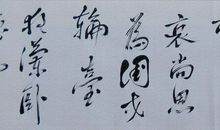 哀尚思
為國戍
輪臺
夜闌卧